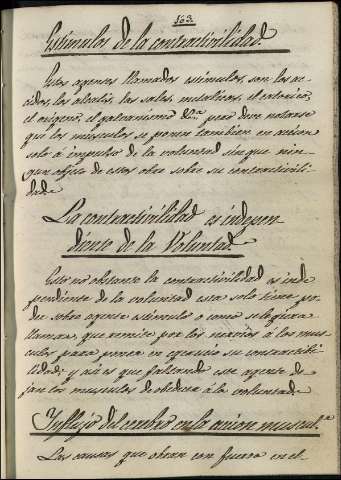 163.
Estimulos de la contractivilidad.
Estos agenes llamados estimulos, son los aci-
dos, los alcalis, las sales, metalicas, el calorico,
el oxigeno, el galvanismo &c.ª pero deve notarse
que los musculos se ponen tambien en accion
solo á impulso de la voluntad sin que nin-
gun objeto de estos obre sobre su contractivili-
dad.
La contractivilidad es indepen
diente de la Voluntad.
Esto no obstante la contractivilidad es inde
pendiente de la voluntad esta solo tiene po-
der sobre agente estimulo o como se
llamar, que remite por los nervios á los mus-
culos para poner en egercicio su contractibi-
lidad; y asi es que faltando este agente de
jan los musculos de obedecer á la voluntad.
Influjo del cerebro en la accion muscul.ª
Las causas que obran con fuerza en el